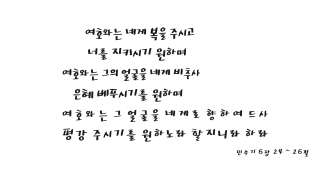 여호와는 네게 복을 주시고
너를 지키시기 원하며
여호와는 그의 얼굴을 네게 비추사
은혜 베푸시기를 원하며
여호와는 그 얼굴을 네게로 향하여 드사
평강 주시기를 원하노라 할지니라 하라
민수기 6장 24 ~ 26절